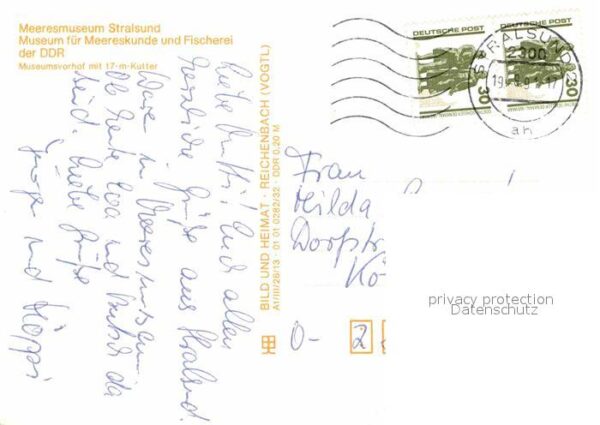 Meeresmuseum Stralsund
Museum für Meereskunde und Fischerei
der DDR
Museumsvorhof mit 17-m-Kutter
Liebe Mutti! Euch allen
herzliche Grüße aus Stralsund.
Waren im Meeresmuseum.
Ob heute und da
seid. Liebe Grüße
Jürgen und
BILD UND HEIMAT · REICHENBACH (VOGTL)
A1/III/26/13 · 01 01 0282/32 · DDR 0,20 M
DEUTSCHE POST
DEUTSCHE POST
30
30
STRALSUND
2300
ah
Frau
Hilda
Dorfstr
Kö
O- 2
privacy protection
Datenschutz